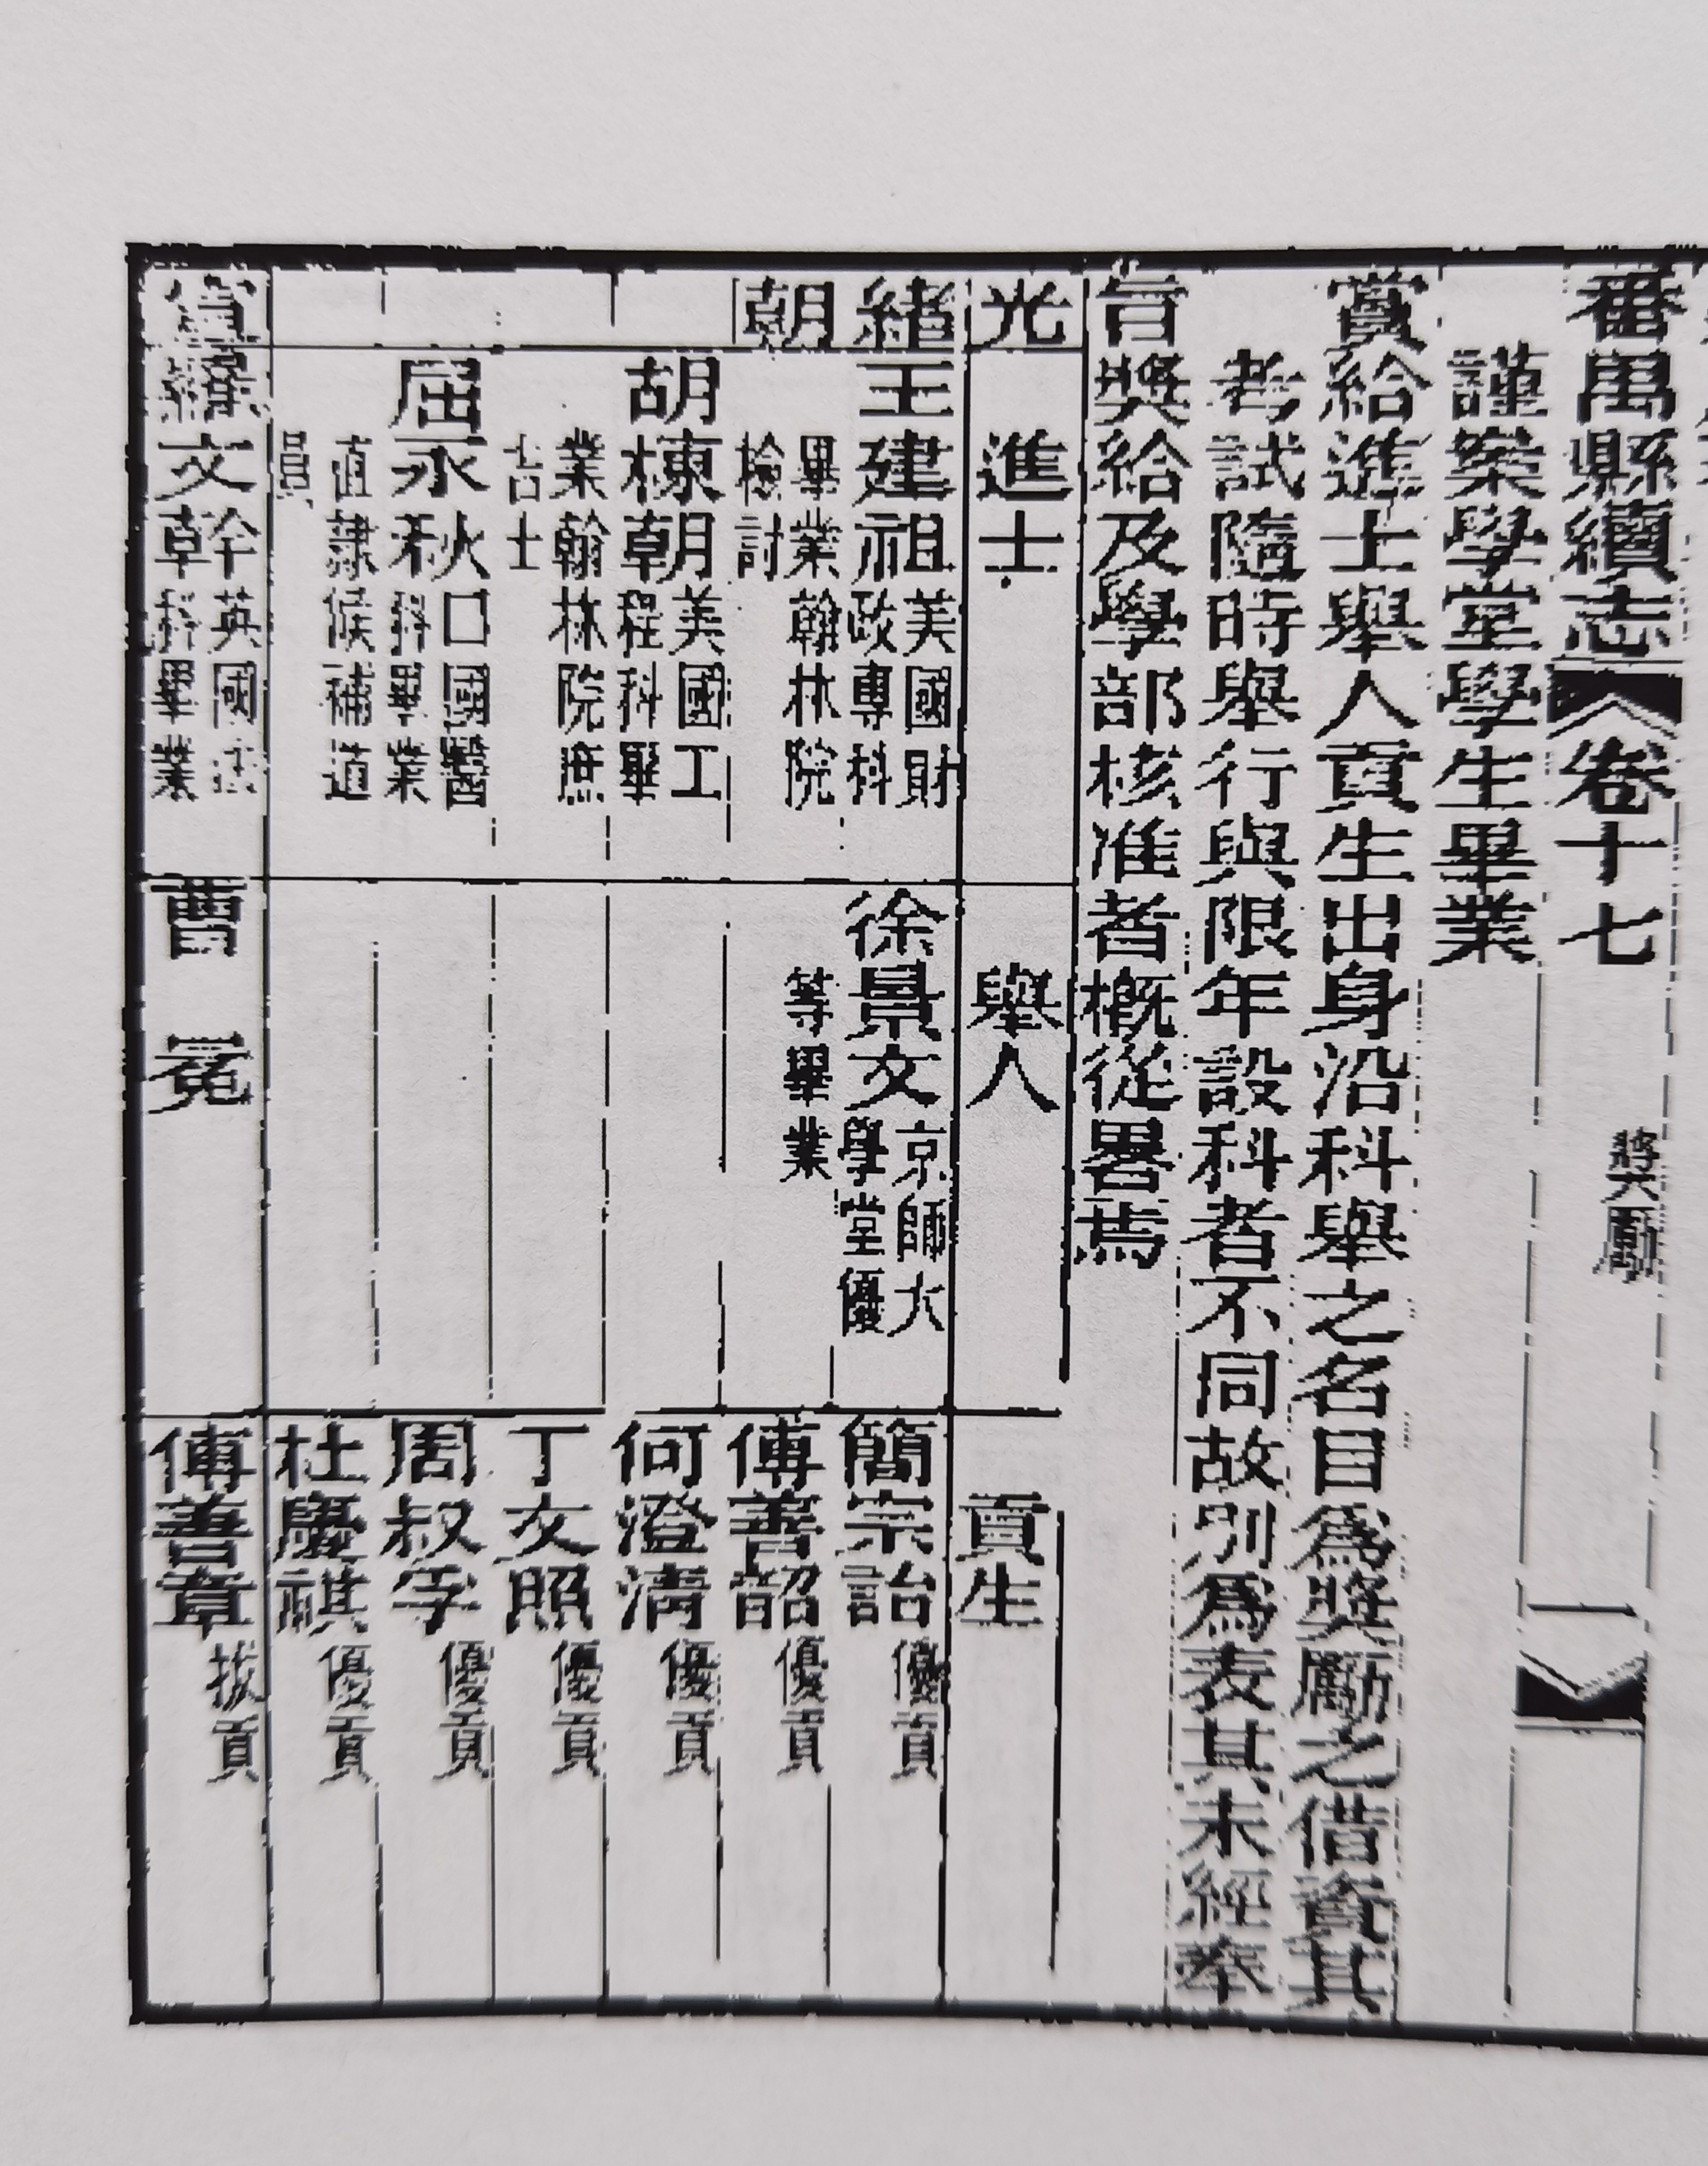 番禺縣續志
卷十七
獎勵
一
謹案學堂學生畢業
賞給進士舉人貢生出身沿科舉之名目爲獎勵之借資其
考試隨時舉行與限年設科者不同故別爲表其未經奉
旨獎給及學部核准者概從畧焉
光
進士
舉人
貢生
緒
王建祖美國財政專科
徐景文京師大學堂優
簡宗詒優貢
朝
畢業翰林院檢討
等畢業
傅善韶優貢
胡棟朝美國工程科畢
何澄清優貢
業翰林院庶吉士
丁文照優貢
屈永秋口國醫科畢業
周叔孚優貢
直隸候補道員
杜慶祺優貢
文幹英國法科畢業
曹冕
傅善章拔貢